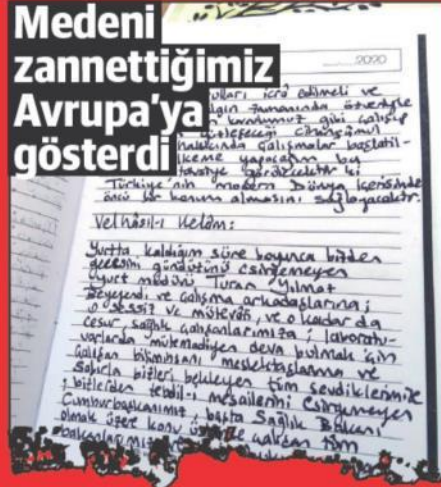 Medeni
zannettiğimiz
Avrupa'ya
gösterdi
2020
icrâ edilmeli ve
zamanında özveriyle
gibi çalışıp
cihanşümul
hakkında çalışmalar başlatıl-
yapacağım bu
tavsiye gösterecektir ki
Türkiye'nin modern Dünya içerisinde
öncü bir konum almasını sağlayacaktır.
Velhâsıl-ı Kelâm:
Yurtta kaldığım süre boyunca bizden
gecesini gündüzünü esirgemeyen
yurt müdürü Turan Yılmaz
Beyefendi ve çalışma arkadaşlarına;
o sessiz ve mütevâzı, ve o kadar da
cesur, sağlık çalışanlarımıza; laboratu-
varlarda mütemadiyen deva bulmak için
çalışan biliminsanı meslektaşlarıma ve
sabırla bizleri bekleyen tüm sevdiklerimize
; bizlerden tebdil-i mesailerini esirgemeyen
Cumhurbaşkanımız, başta Sağlık Bakanı
olmak üzere konu üzerine çalışan tüm
bakanlarımız